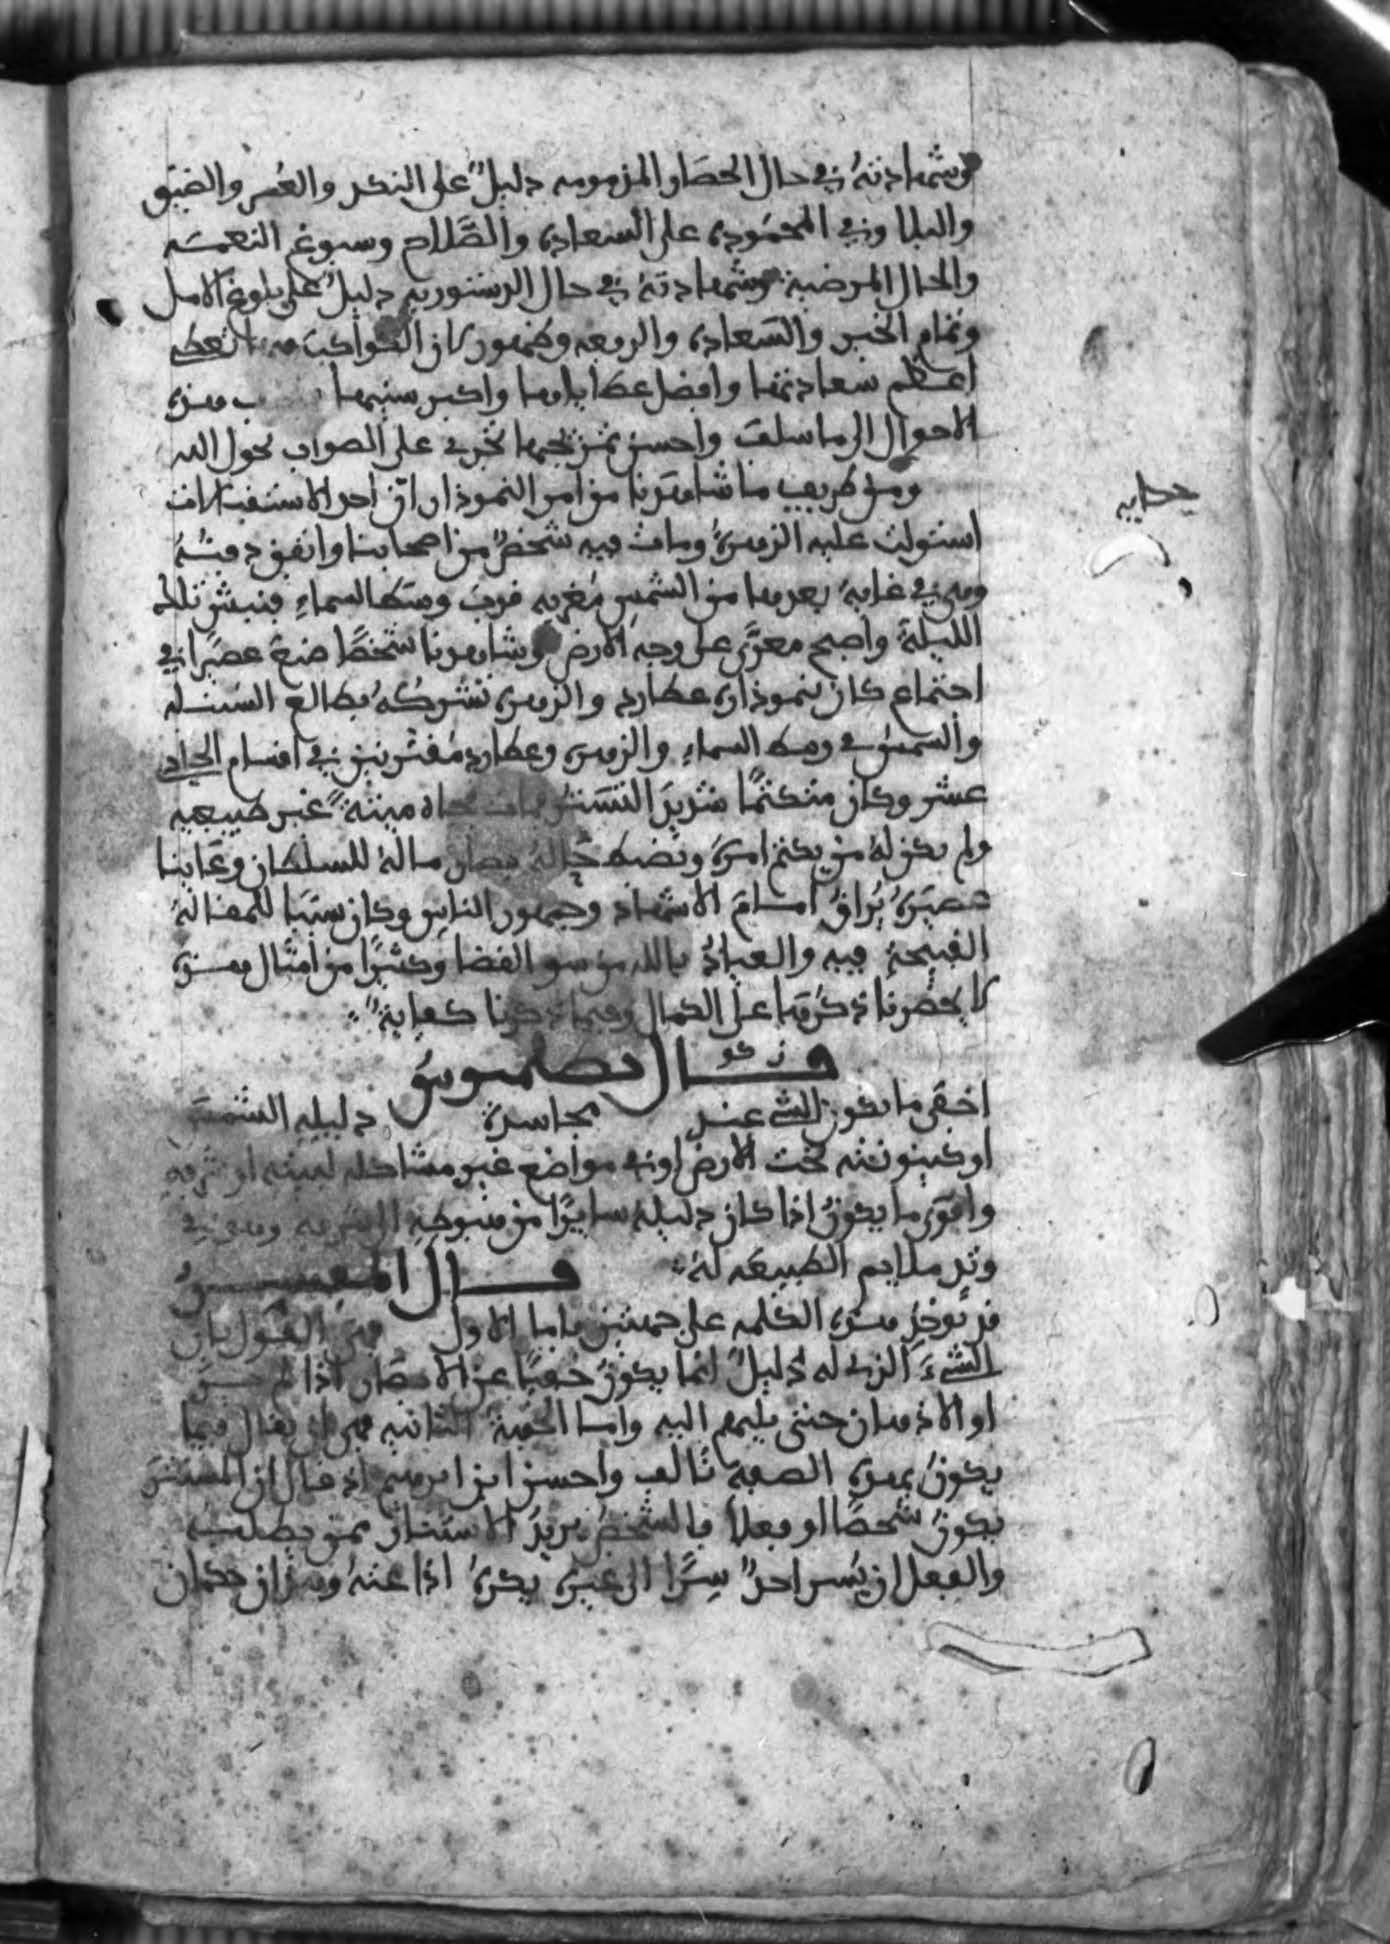 وشهادته في حال الحصار المذمومه دليل على النكد والعسر والضيق
والبلا وفي المحموده على السعاده والصلاح وسبوغ النعمه
والحال المرضية وشهادته في حال الدستوريه دليل على بلوغ الامل
وتمام الخير والسعاده والرفعه وظهور لان الكواكب تعطى
اعظم سعادتها وافضل عطاياها واكبر سنيها هذه
الاحوال الى ما سلف واحسن تمزيجها تجرى على الصواب بحول الله
ومن طريف ما شاهدنا من امر النموذار ان احد الاستقبالات
حكايه
استولت عليه الزهرة ومات فيه شخص من اصحابنا واتفق دفنه
وهي في غاية بعدها من الشمس مغربه قرب وسط السماء فنبش تلك
الليلة واصبح معرّى على وجه الارض وشاهدنا شخصا صنع عصرا في
اجتماع كان نموذاره عطارد والزهره تشركه بطالع السنبله
والشمس في وسط السماء والزهره وعطارد مقترنين في اقسام الحادي
عشر وكان متكتما شديد التستر فمات ميتة غير طبيعيه
ولم يكن له من يكتم امره ويضبط حاله فصار ماله للسلطان وعاينا
عصيره يراق امام الاشهاد وجمهور الناس وكان سببا للمقالة
القبيحة فيه والعياذ بالله من سو القضا وكثيرا من امثال هذه
لا يحضرنا ذكرها على الكمال وفيما ذكرنا كفاية
قال بطلميوس
اخفى ما يكون الشى عند مجاسدة دليله الشمس
او كينونته تحت الارض او في مواضع غير مشاكله لبيته او شرفه
واقوى ما يكون اذا كان دليله سايرا من هبوطه الى شرفه وهو في
وتد ملايم الطبيعه له
قال المفسر
قد توخذ هذه الكلمه على جهتين فاما الاولى فهي القول بان
الشيء الذى له دليل انما يكون خفيا عن الابصار اذا لم
او الاذهان حتى يلهم اليه واما الجهة الثانيه فهي ان يقال فيما
يكون بهذه الصفة تالف واحسن ابن ابرهيم اذ قال ان المستتر
يكون شخصا او فعلا فالشخص يريد الاستتار ممن يطلبه
والفعل ان يسر احد سرا الى غيره يكره اذاعته وهذان حكمان